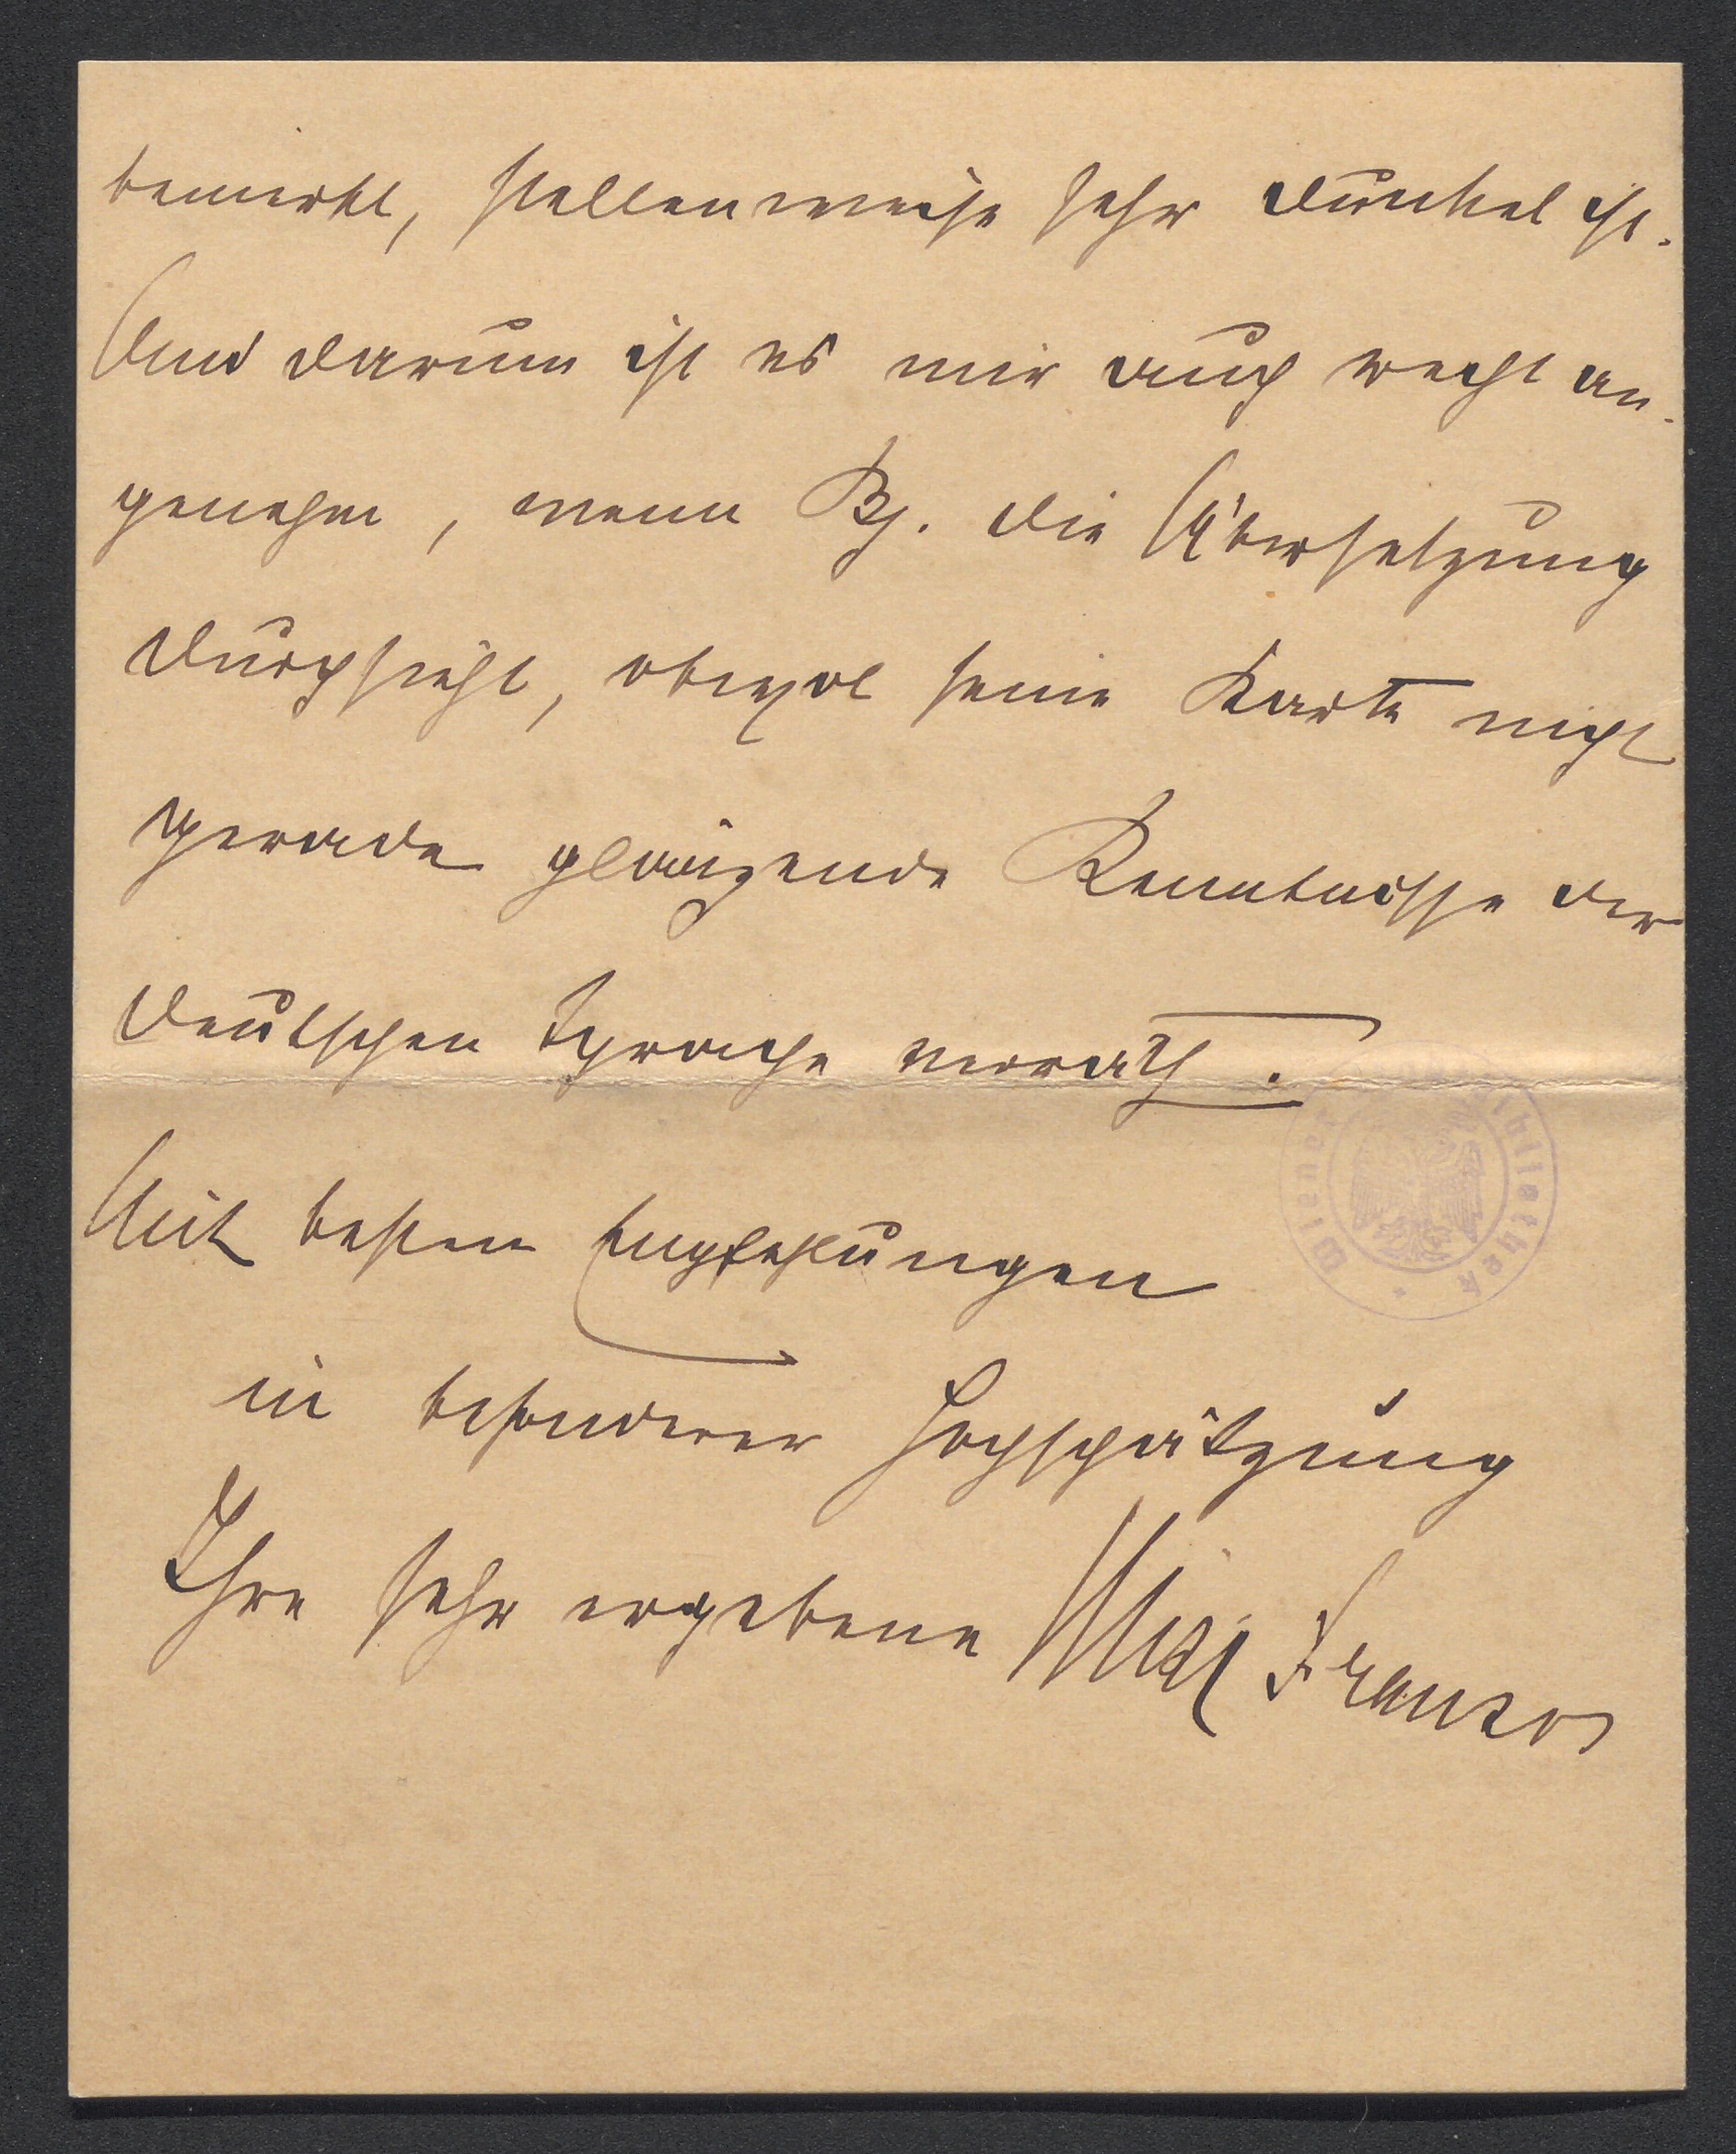 bemerkt, stellenweise sehr dunkel ist.
Und darum ist es mir auch recht an-
genehm, wenn Bj. die Übersetzung
durchsieht, obwol seine Karte nicht
gerade glänzende Kenntnisse der
deutschen Sprache verräth.
Mit besten Empfehlungen
in besonderer Hochschätzung
Ihre sehr ergebene Marie Franzos
Wiener Bibliothek